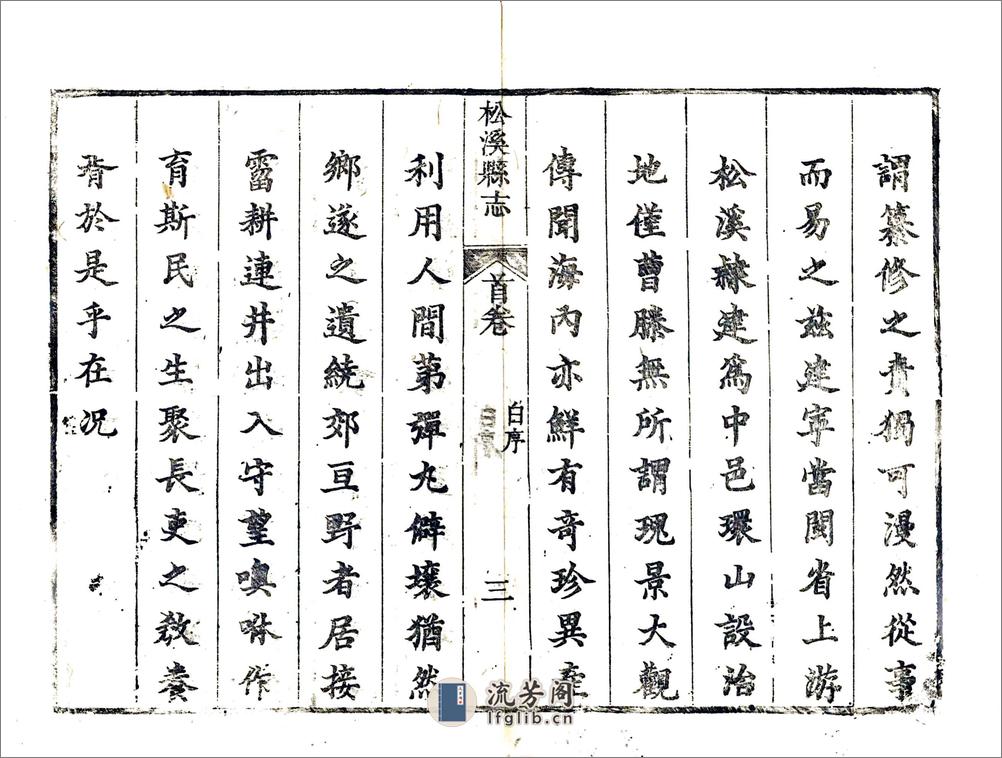 謂纂修之責獨可漫然從事
而易之茲建寧當閩省上游
松溪隸建為中邑環山設治
地僅曹滕無所謂瑰景大觀
傳聞海內亦鮮有奇珍異產
松溪縣志
首卷
自序
三
利用人間苐彈丸僻壤猶然
鄉遂之遺統郊亘野者居接
霤耕連井出入守望噢咻作
育斯民之生聚長吏之教養
胥於是乎在况
流芳阁
lfglib.cn